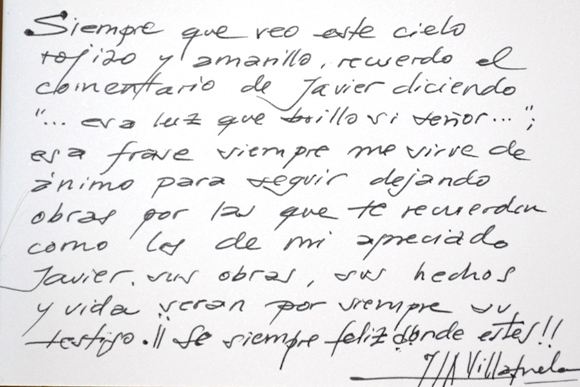 Siempre que veo este cielo
rojizo y amarillo, recuerdo el
comentario de Javier diciendo
"... esa luz que brillo si señor...";
esa frase siempre me sirve de
ánimo para seguir dejando
obras por las que te recuerdan
como las de mi apreciado
Javier. sus obras, sus hechos
y vida seran por siempre su
testigo.!! Se siempre feliz donde estes!!
Villafuela